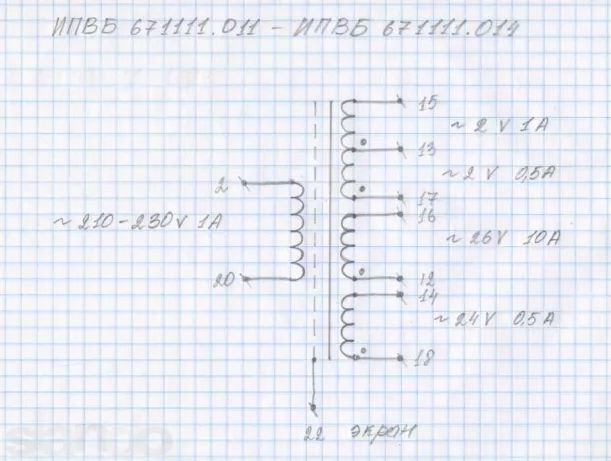 ИПВБ 671111.011 – ИПВБ 671111.014
15
~ 2 V 1A
2
13
~ 2 V 0,5A
17
~ 210-230V 1A
16
~ 26V 10A
20
12
14
~ 24V 0,5A
18
22 экран